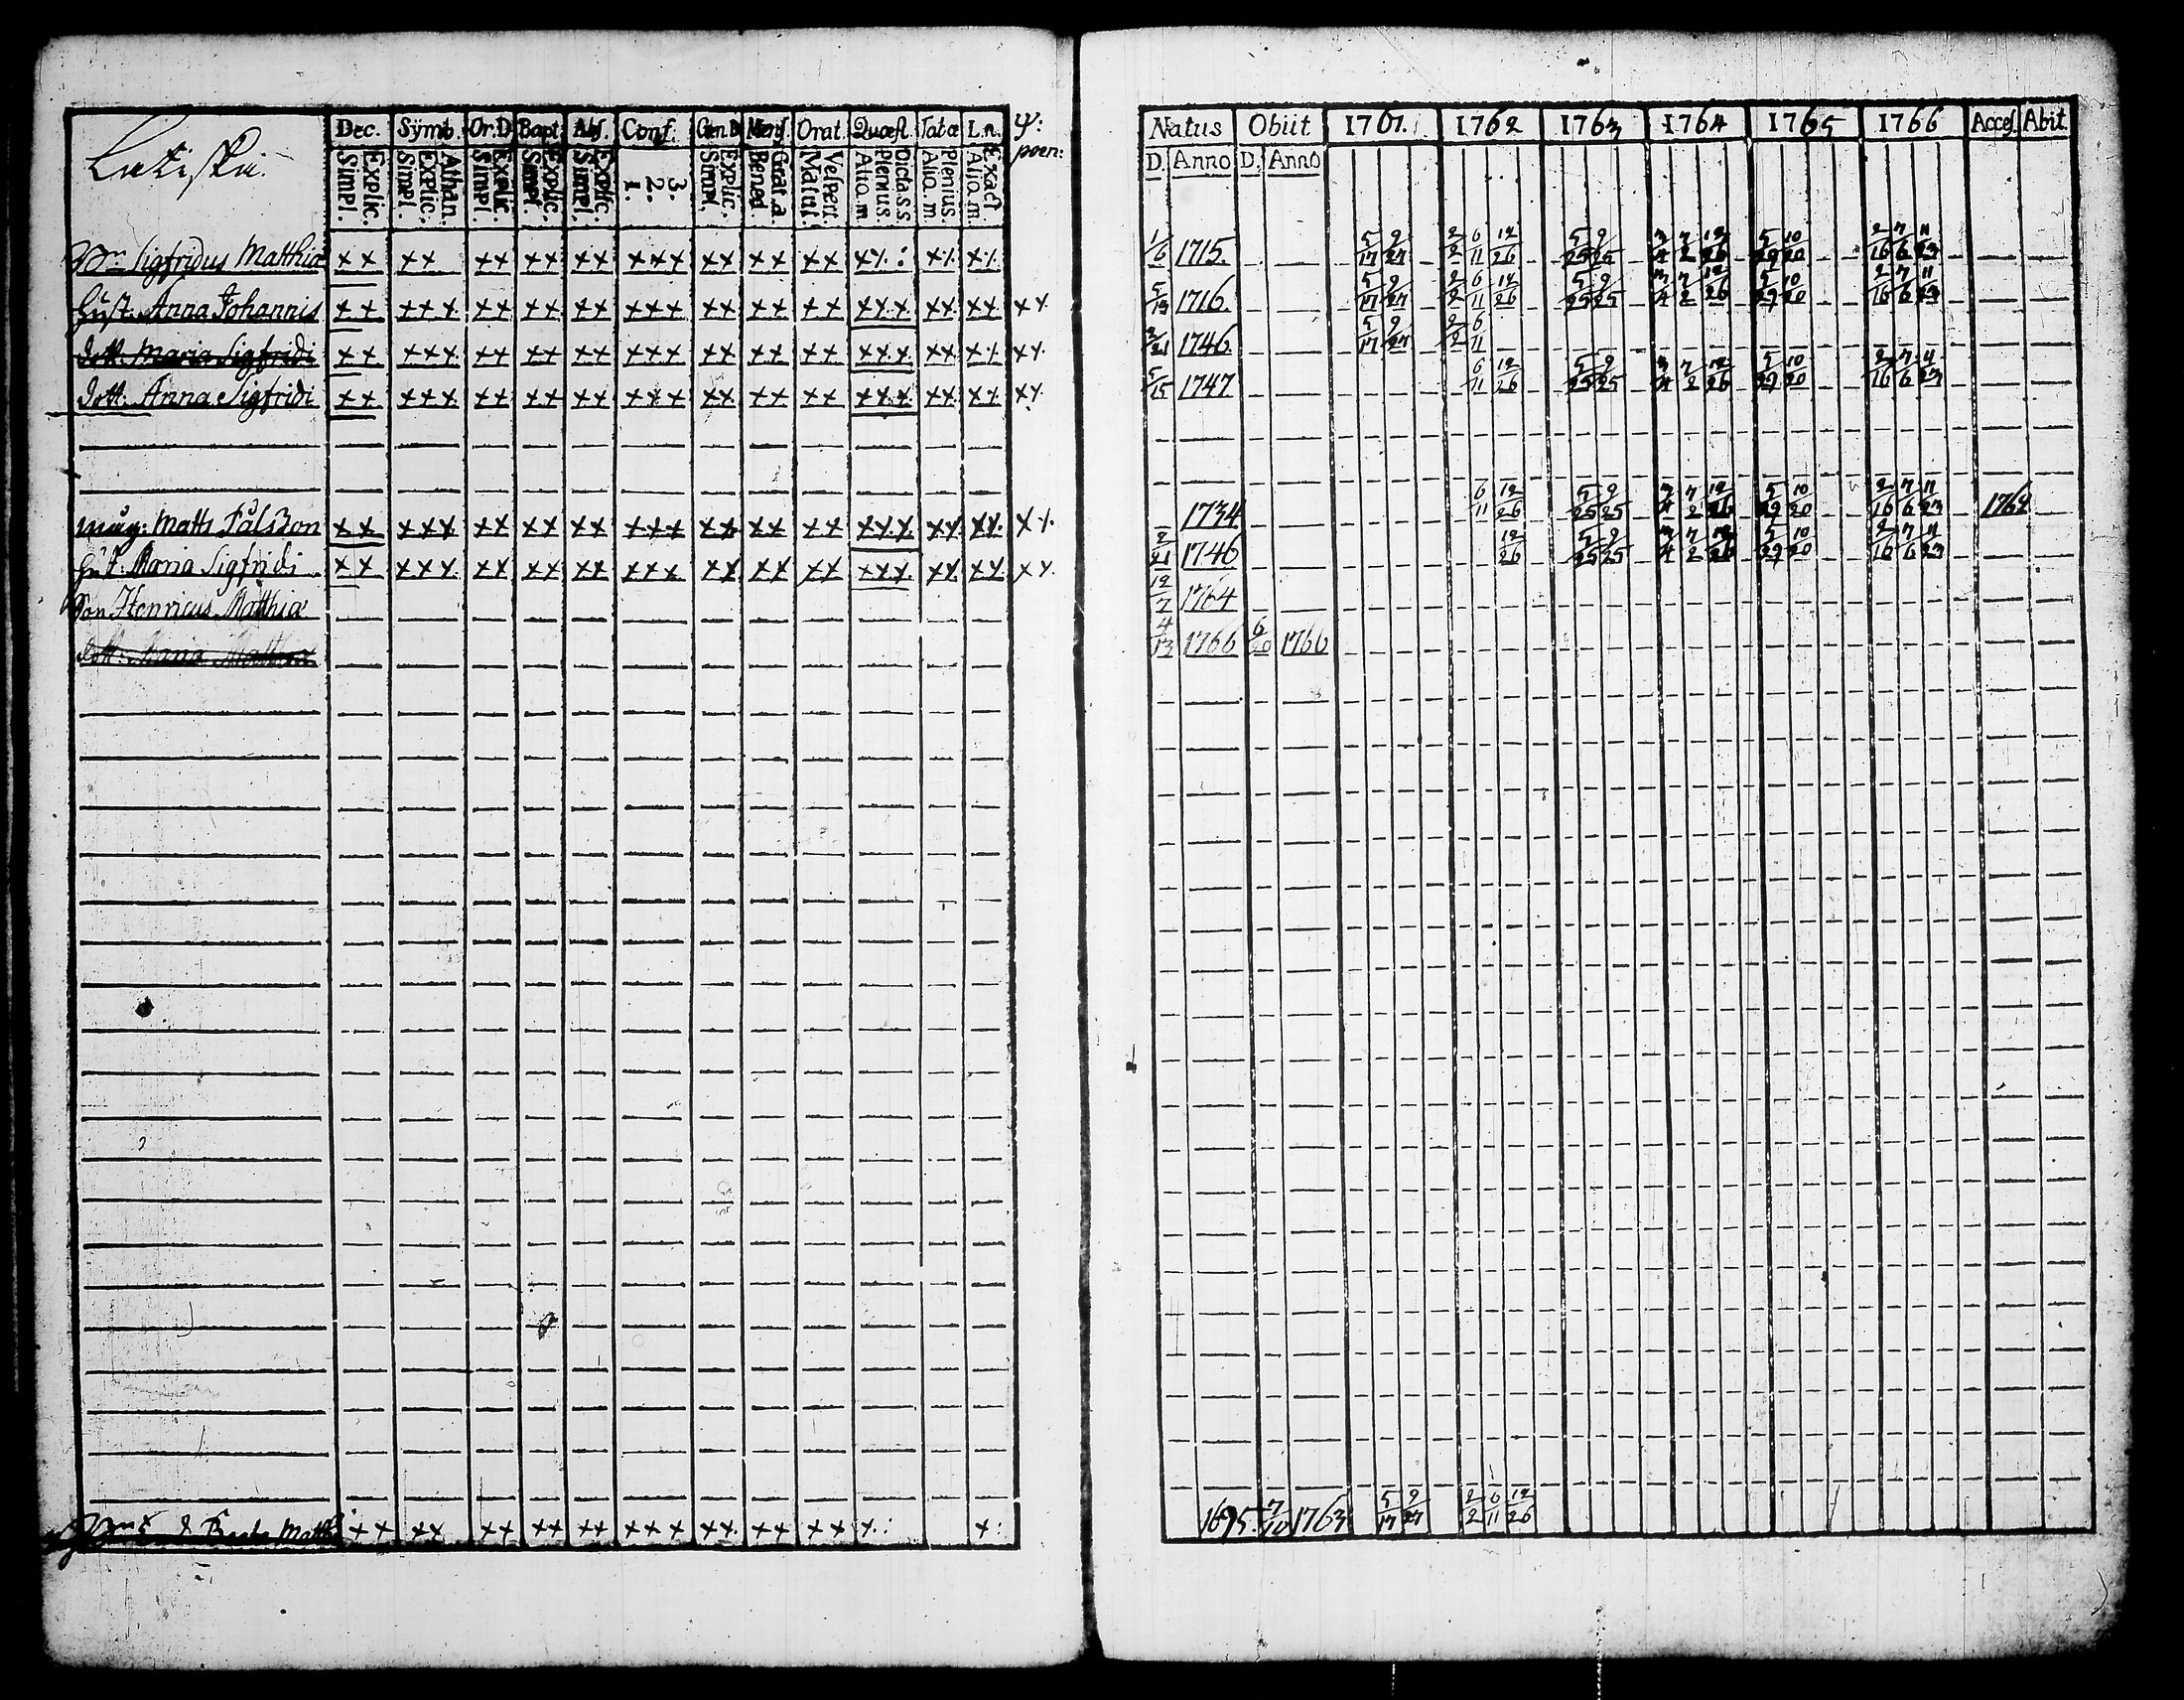 Dec. Symb. Or.D. Bapt. Abs. Conf. Gen.D Mens. Orat. Quæst. Tabæ L.n. ψ:
Simpl. Explic. Simpl. Explic. Athan. Simpl. Explic. Simpl. Explic. Simpl. Explic. 1. 2. 3. Simpl. Explic. Bened. Grat.a Matut. Vespert. Alio.m Plenius. Dicta.s.s Alio.m. Plenius. Alio.m. Exact. poen:
Sigfridus Matthiæ x x x x x x x x x x x x x x x x x x x x
Hust. Anna Johannis x x x x x x x x x x x x x x x x x x x x x x x x x x x x x x
dott. Maria Sigfridi x x x x x x x x x x x x x x x x x x x x x x x x x x x x x x
dott. Anna Sigfridi x x x x x x x x x x x x x x x x x x x x x x x x x x x x x x
måg: Matts Påls3on x x x x x x x x x x x x x x x x x x x x x x x x x x x x x x
Hust. Maria Sigfridi x x x x x x x x x x x x x x x x x x x x x x x x x x x x x x
Son Henricus Matthiæ
dott. Maria Matthiæ
x x x x x x x x x x x x x x x x x x x x x: x:
Natus Obiit 1761. 1762 1763 1764 1765 1766 Acces. Abit
D. Anno D. Anno
1/6 1715. 5/17 9/27 2/2 6/11 12/26 5/25 9/25 3/4 7/2 12/26 5/29 10/20 2/16 7/6 11/23
5/13 1716. 5/17 9/27 2/2 6/11 12/26 5/25 9/25 3/4 7/2 12/26 5/29 10/20 2/16 7/6 11/23
2/21 1746. 5/17 9/27 2/2 6/11
5/15 1747. 6/11 12/26 5/25 9/25 3/4 7/2 12/26 5/29 10/20 2/16 7/6 11/23
1734 6/11 12/26 5/25 9/25 3/4 7/2 12/26 5/29 10/20 2/16 7/6 11/23 1762
2/21 1746 12/26 5/25 9/25 3/4 7/2 12/26 5/29 10/20 2/16 7/6 11/23
12/7 1764
4/13 1766 6/20 1766
1695. 7/10 1763 5/17 9/27 2/2 6/11 12/26